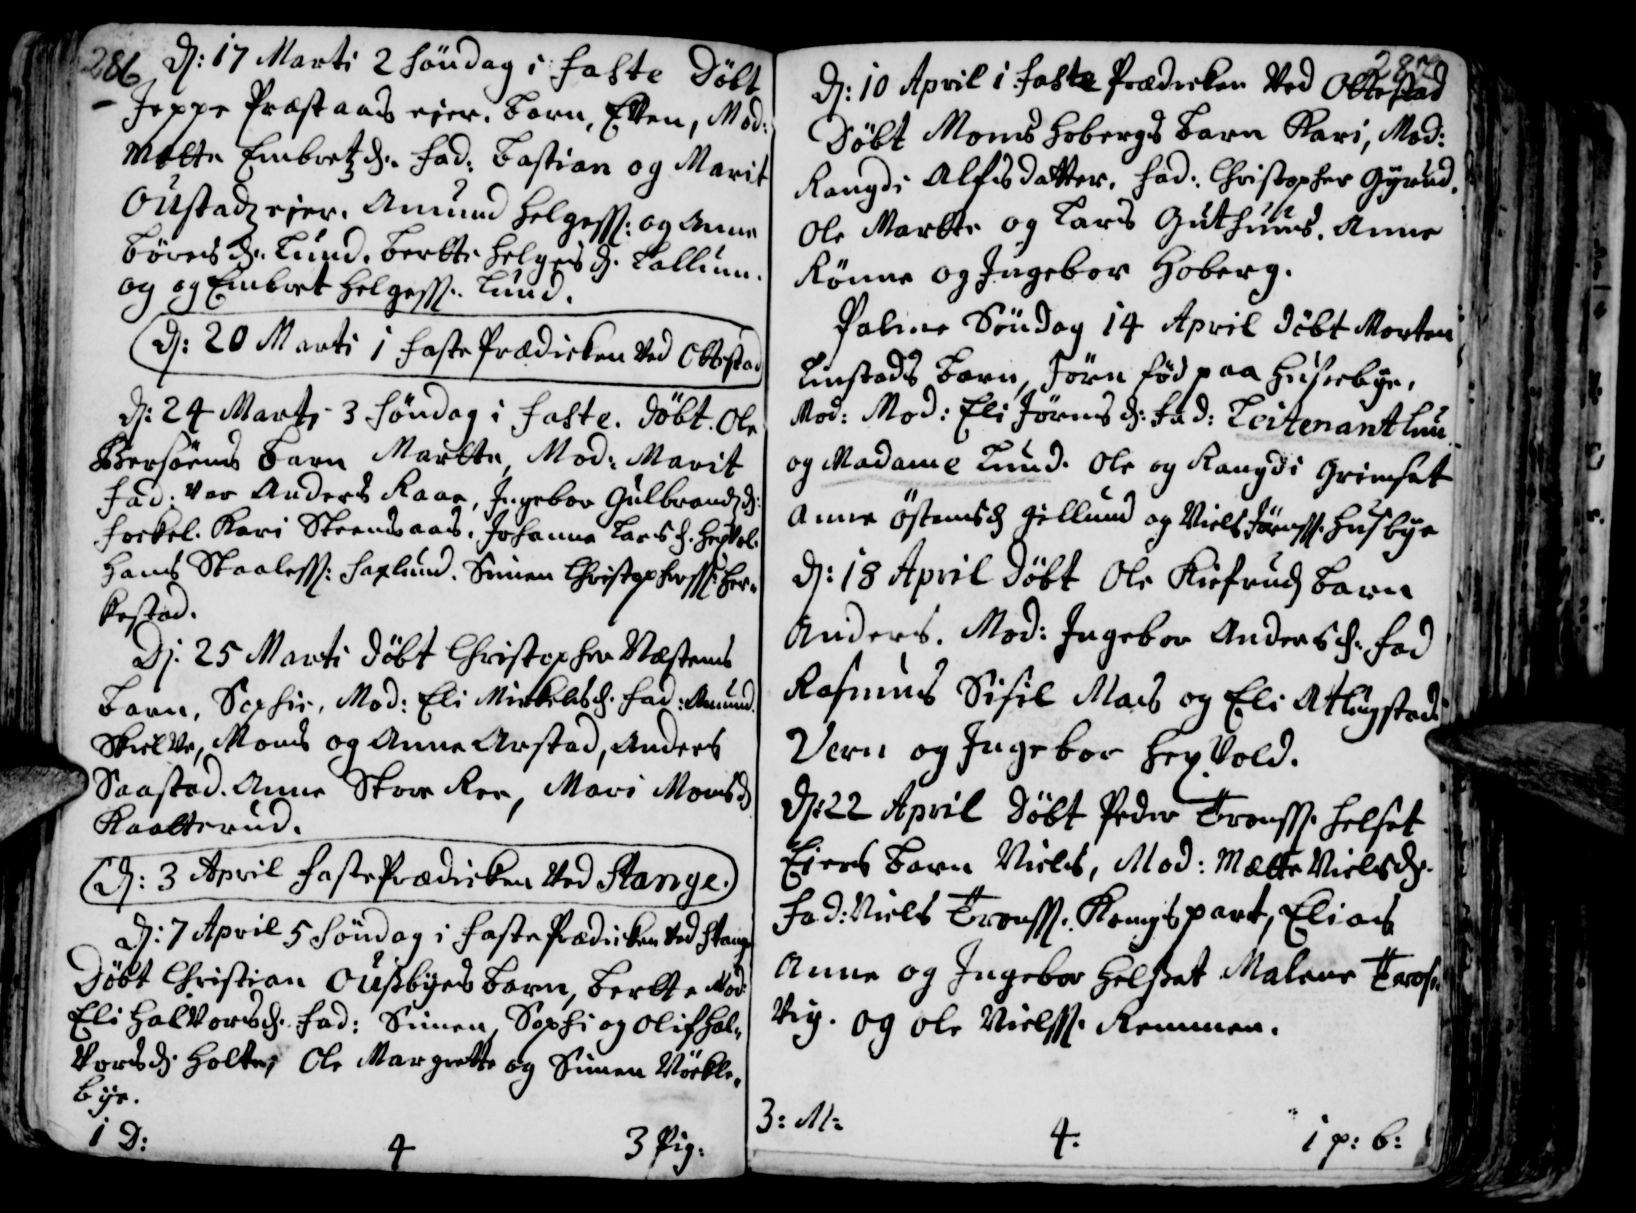 286
D: 17 Marti 2 Söndag i faste Döbt
Jeppe Præstaas eier. barn, Even, Mod:
Mætte Embretz d. fad: Bastian og Marit
Oustadz eier. Amund Helgess: og Anne
Börres d. Lund. Berthe Helges d. Tallum.
og og Embret Helgess. Lund.
D: 20 Marti i faste Prædicken Ved Ottestad
D: 24 Marti 3 Söndag i faste. Döbt. Ole
barn Marthe, Mod: Marit
fad: var Anders Raae, Ingebor Gulbrandz d:
Kari Steensaas. Johanne Lars d.
Hans Skaaless: Saxlund. Simen Christophss: Her-
kestad.
D: 25 Marti Döbt Christopher Næstens
barn, Sophie, Mod: Eli Mickels d. fad: Amund
Skielve, Mons og Anne Arstad, Anders
Saastad. Anne Store Ree, Mari Mons d
Kaatterud.
D: 3 April faste Prædicken Ved Stange.
D: 7 April 5 Söndag i faste Prædicken Ved Stange
Döbt Christian Ousbyes barn, Berthe Mod:
Eli Halvors d. fad: Simen, Sophi og Olif Hal-
vors d Holte, Ole Margrethe og Simen Nöckle-
bye.
1 D: 4 3 Pig:
287
D: 10 April i faste Prædicken Ved Ottestad
Döbt Mons Hobergs barn Kari, Mod:
Rangdi Alfisdatter. fad: Christopher Gyrud.
Ole Marthe og Lars Guthuus. Anne
Rönne og Ingebor Hoberg.
Palme Söndag 14 April döbt Morten
Linstads barn, Jörn föd paa Husebye,
Mod: Mod: Eli Jörens d: fad: Leitenant Lun
og Madame Lund. Ole og Rangdi Grimset
Anne Östens d Gillund og Niels Jörenss. Husbye
D: 18 April Döbt Ole Kiefrudz barn
Anders. Mod: Ingebor Anders d. fad
Rasmus Sisil Maes og Eli Atlugstad
Vern og Ingebor Hexvold.
D: 22 April Döbt Peder Tronss. Helset
Eiers barn Niels, Mod: Mætte Niels d.
fad: Niels Tronss. Kongspart, Elias
Anne og Ingebor Helset Malene
Vig. og Ole Nielss. Remmen.
3: M: 4: 1 p: b: